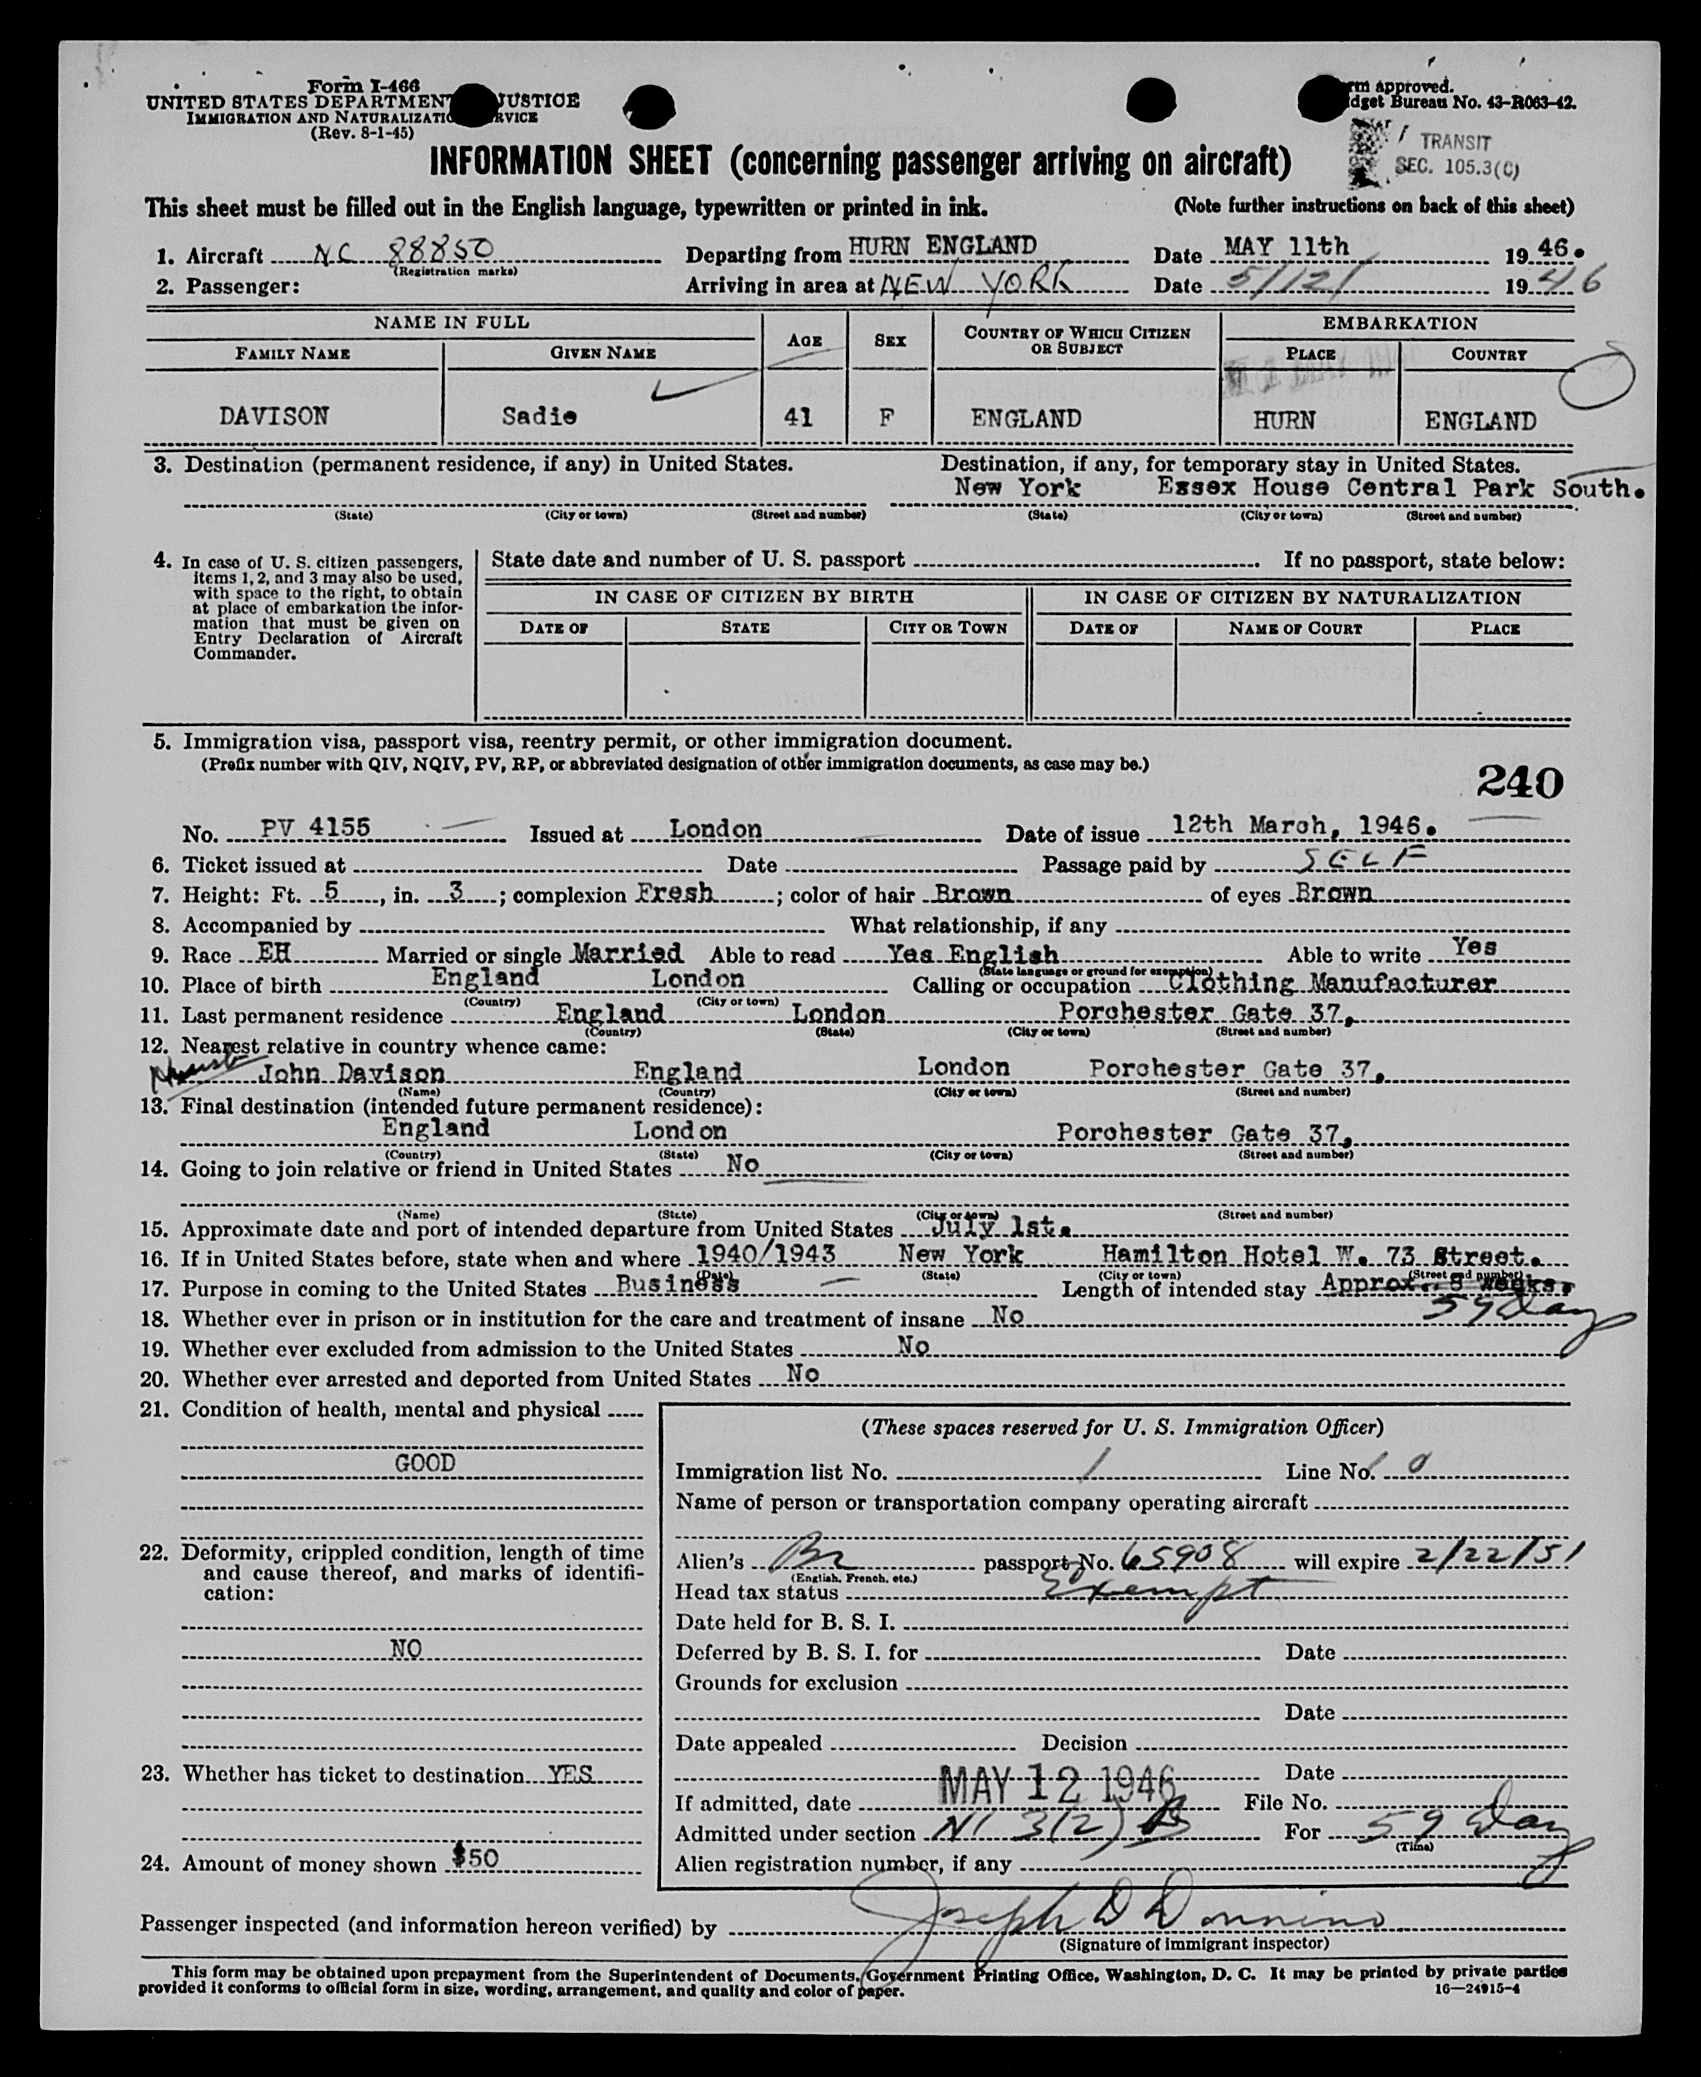 Form I-466
UNITED STATES DEPARTMENT JUSTICE
IMMIGRATION AND NATURALIZATIO RVICE
(Rev. 8-1-45)
rm approved.
dget Bureau No. 43-R063-42.
TRANSIT
SEC. 105.3(C)
INFORMATION SHEET (concerning passenger arriving on aircraft)
This sheet must be filled out in the English language, typewritten or printed in ink. (Note further instructions on back of this sheet)
1. Aircraft NC 88850 Departing from HURN ENGLAND Date MAY 11th 1946.
(Registration marks)
2. Passenger: Arriving in area at NEW YORK Date 5/12/ 1946
NAME IN FULL AGE SEX COUNTRY OF WHICH CITIZEN OR SUBJECT EMBARKATION
FAMILY NAME GIVEN NAME PLACE COUNTRY
DAVISON Sadie 41 F ENGLAND HURN ENGLAND
3. Destination (permanent residence, if any) in United States. Destination, if any, for temporary stay in United States.
New York Essex House Central Park South.
(State) (City or town) (Street and number) (State) (City or town) (Street and number)
4. In case of U. S. citizen passengers, items 1, 2, and 3 may also be used, with space to the right, to obtain at place of embarkation the information that must be given on Entry Declaration of Aircraft Commander.
State date and number of U. S. passport If no passport, state below:
IN CASE OF CITIZEN BY BIRTH IN CASE OF CITIZEN BY NATURALIZATION
DATE OF STATE CITY OR TOWN DATE OF NAME OF COURT PLACE
5. Immigration visa, passport visa, reentry permit, or other immigration document.
(Prefix number with QIV, NQIV, PV, RP, or abbreviated designation of other immigration documents, as case may be.)
240
No. PV 4155 Issued at London Date of issue 12th March, 1946.
6. Ticket issued at Date Passage paid by SELF
7. Height: Ft. 5, in. 3; complexion Fresh; color of hair Brown of eyes Brown
8. Accompanied by What relationship, if any
9. Race EH Married or single Married Able to read Yes English Able to write Yes
(State language or ground for exemption)
10. Place of birth England London Calling or occupation Clothing Manufacturer
(Country) (City or town)
11. Last permanent residence England London Porchester Gate 37,
(Country) (State) (City or town) (Street and number)
12. Nearest relative in country whence came:
John Davison England London Porchester Gate 37,
(Name) (Country) (City or town) (Street and number)
13. Final destination (intended future permanent residence):
England London Porchester Gate 37,
(Country) (State) (City or town) (Street and number)
14. Going to join relative or friend in United States No
(Name) (State) (City or town) (Street and number)
15. Approximate date and port of intended departure from United States July 1st.
16. If in United States before, state when and where 1940/1943 New York Hamilton Hotel W. 73 Street.
(Date) (State) (City or town) (Street and number)
17. Purpose in coming to the United States Business Length of intended stay Approx. 8 weeks.
59 Day
18. Whether ever in prison or in institution for the care and treatment of insane No
19. Whether ever excluded from admission to the United States No
20. Whether ever arrested and deported from United States No
21. Condition of health, mental and physical
GOOD
22. Deformity, crippled condition, length of time and cause thereof, and marks of identification:
NO
23. Whether has ticket to destination YES
24. Amount of money shown $50
(These spaces reserved for U. S. Immigration Officer)
Immigration list No. 1 Line No. 10
Name of person or transportation company operating aircraft
Alien's Br passport No. 65908 will expire 2/22/51
(English, French, etc.)
Head tax status Exempt
Date held for B. S. I.
Deferred by B. S. I. for Date
Grounds for exclusion
Date
Date appealed Decision
Date
If admitted, date MAY 12 1946 File No.
Admitted under section 3(2) B For 59 Day
(Time)
Alien registration number, if any
Passenger inspected (and information hereon verified) by Joseph D Donnino
(Signature of immigrant inspector)
This form may be obtained upon prepayment from the Superintendent of Documents, Government Printing Office, Washington, D. C. It may be printed by private parties
provided it conforms to official form in size, wording, arrangement, and quality and color of paper. 16—24915-4